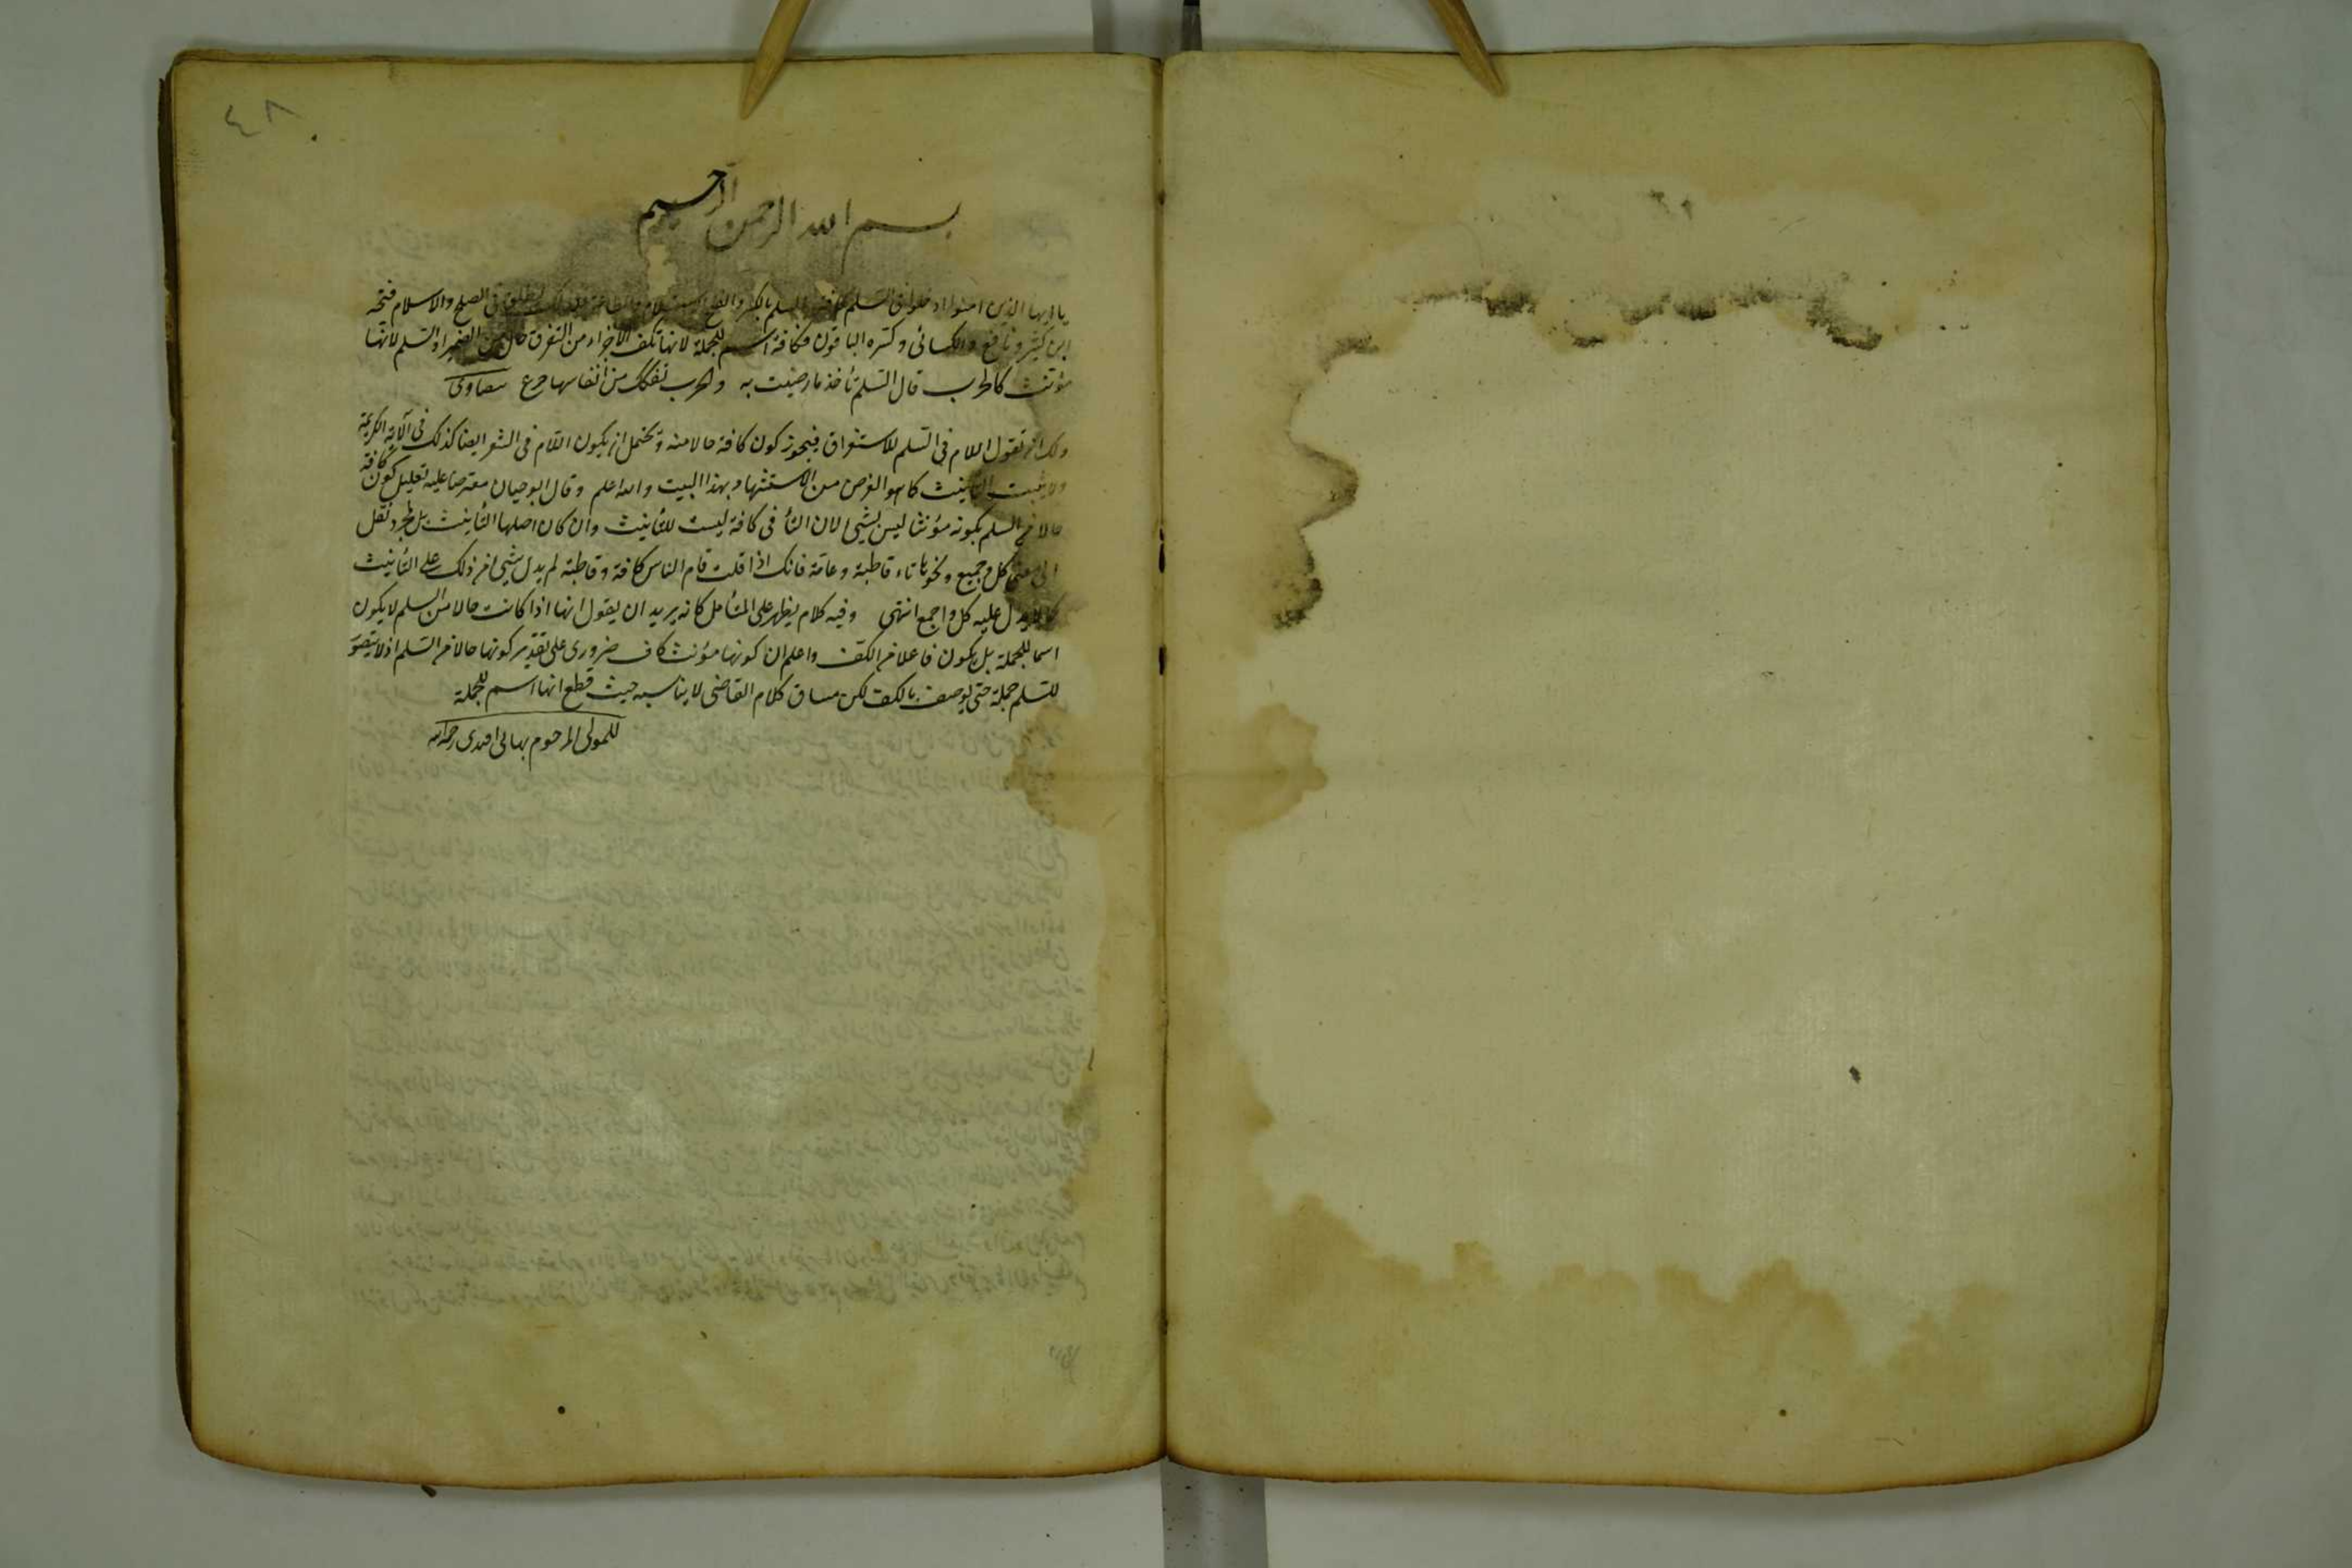 ٤٨
بسم الله الرحمن الرحيم
يا ايها الذين امنوا ادخلوا في السلم كافة السلم بالكسر والفتح الاستسلام والطاعة ولذلك يطلق في الصلح والاسلام فتحه
ابن كثير ونافع والكسائي وكسره الباقون وكافة اسم للجملة لانها تكف الاجزاء من التفرق حال من الضمير او السلم لانها
مؤنث كالحرب قال السلم تأخذ ما رضيت به والحرب تفكك من انفاسها جرع بيضاوى
ولك ان تقول اللام في السلم للاستغراق فيجوز كون كافة حالا منه ويحتمل ان يكون اللام في الشعر ايضا كذلك في الآية الكريمة
ولا يثبت التأنيث كما هو الغرض من الاستشهاد بهذا البيت والله اعلم وقال ابو حيان معترضا عليه تعليل كون كافة
حالا من السلم بكونه مؤنثا ليس بشئ لان التأ في كافة ليست للتأنيث وان كان اصلها التأنيث بل لمجرد نقل
الى معنى كل وجميع ونحوها تاء قاطبة وعامة فانك اذا قلت قام الناس كافة وقاطبة لم يدل شئ من ذلك على التأنيث
كما لا يدل عليه كل واجمع انتهى وفيه كلام يظهر على المتأمل كانه يريد ان يقول انها اذا كانت حالا من السلم لا يكون
اسما للجملة بل يكون فاعلا من الكف واعلم ان كونها مؤنث كاف ضرورى على تقدير كونها حالا من السلم اذ لا يتصور
للسلم جملة حتى يوصف بالكف لكن مساق كلام القاضى لا يناسبه حيث قطع انها اسم للجملة
للمولى المرحوم بهائى افندى رحمه الله